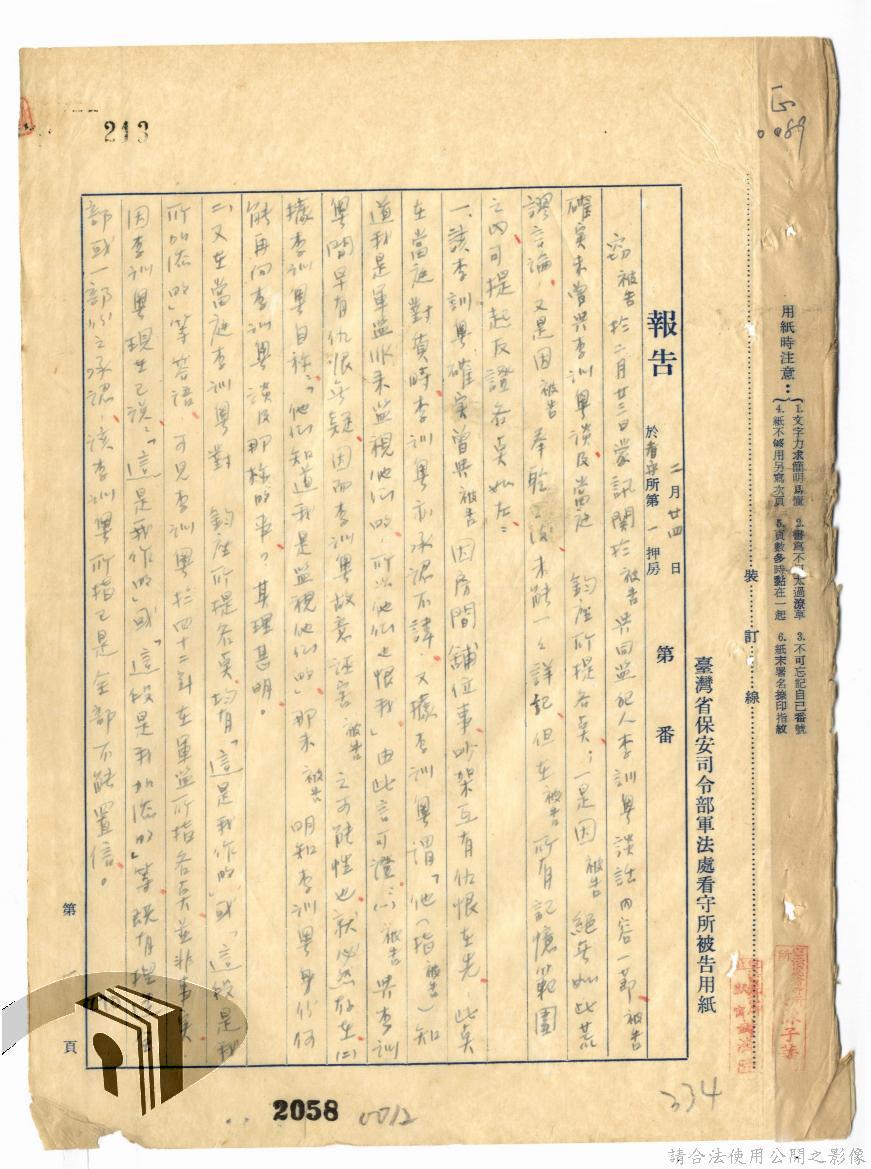 用紙時注意：
1. 文字力求簡明易懂 2. 書寫不可太過潦草 3. 不可忘記自己番號
4. 紙不够用另寫次頁 5. 頁數多時點在一起 6. 紙末署名捺印指紋
裝 訂 線
臺灣省保安司令部軍法處看守所被告用紙
報告 二月廿四日 於看守所第一押房 第 番
竊被告於二月廿三日蒙訊關於被告共同監犯人李訓粵談話內容一節，被告
確実未曾與李訓粵談及，當庭 鈞座所提各奌；一是因被告絕無如此荒
謬言論，又是因被告奉聆之後未能一々詳記，但在被告所有記憶範圍
之內可提起反證各奌如左：
一、該李訓粵確実曾與被告因房間舖位事吵架互有仇恨在先，此奌
在當庭對質時李訓粵亦承認不諱，又據李訓粵謂「他（指被告）知
道我是軍監派來監視他们的，所以他们也恨我」由此言可澄：㈠被告與李訓
粵間早有仇恨無疑，因而李訓粵故意誣害被告之可能性也就必然存在㈡
據李訓粵自称：「他们知道我是監視他们的」那末被告明知李訓粵身份何
能再向李訓粵談及那樣的事？其理甚明。
二、又在當庭李訓粵對 鈞座所提各奌，均有「這是我作的」或「這段是我
所加添的」等答語，可見李訓粵於四十二年在軍監所指各奌並非事実
因李訓粵現在已說：「這是我作的」或「這段是我加添的」等既有
部或一部份之承認，該李訓粵所指已是全部不能置信。
第 一 頁
213
0089
334
2058
0012
請合法使用公開之影像